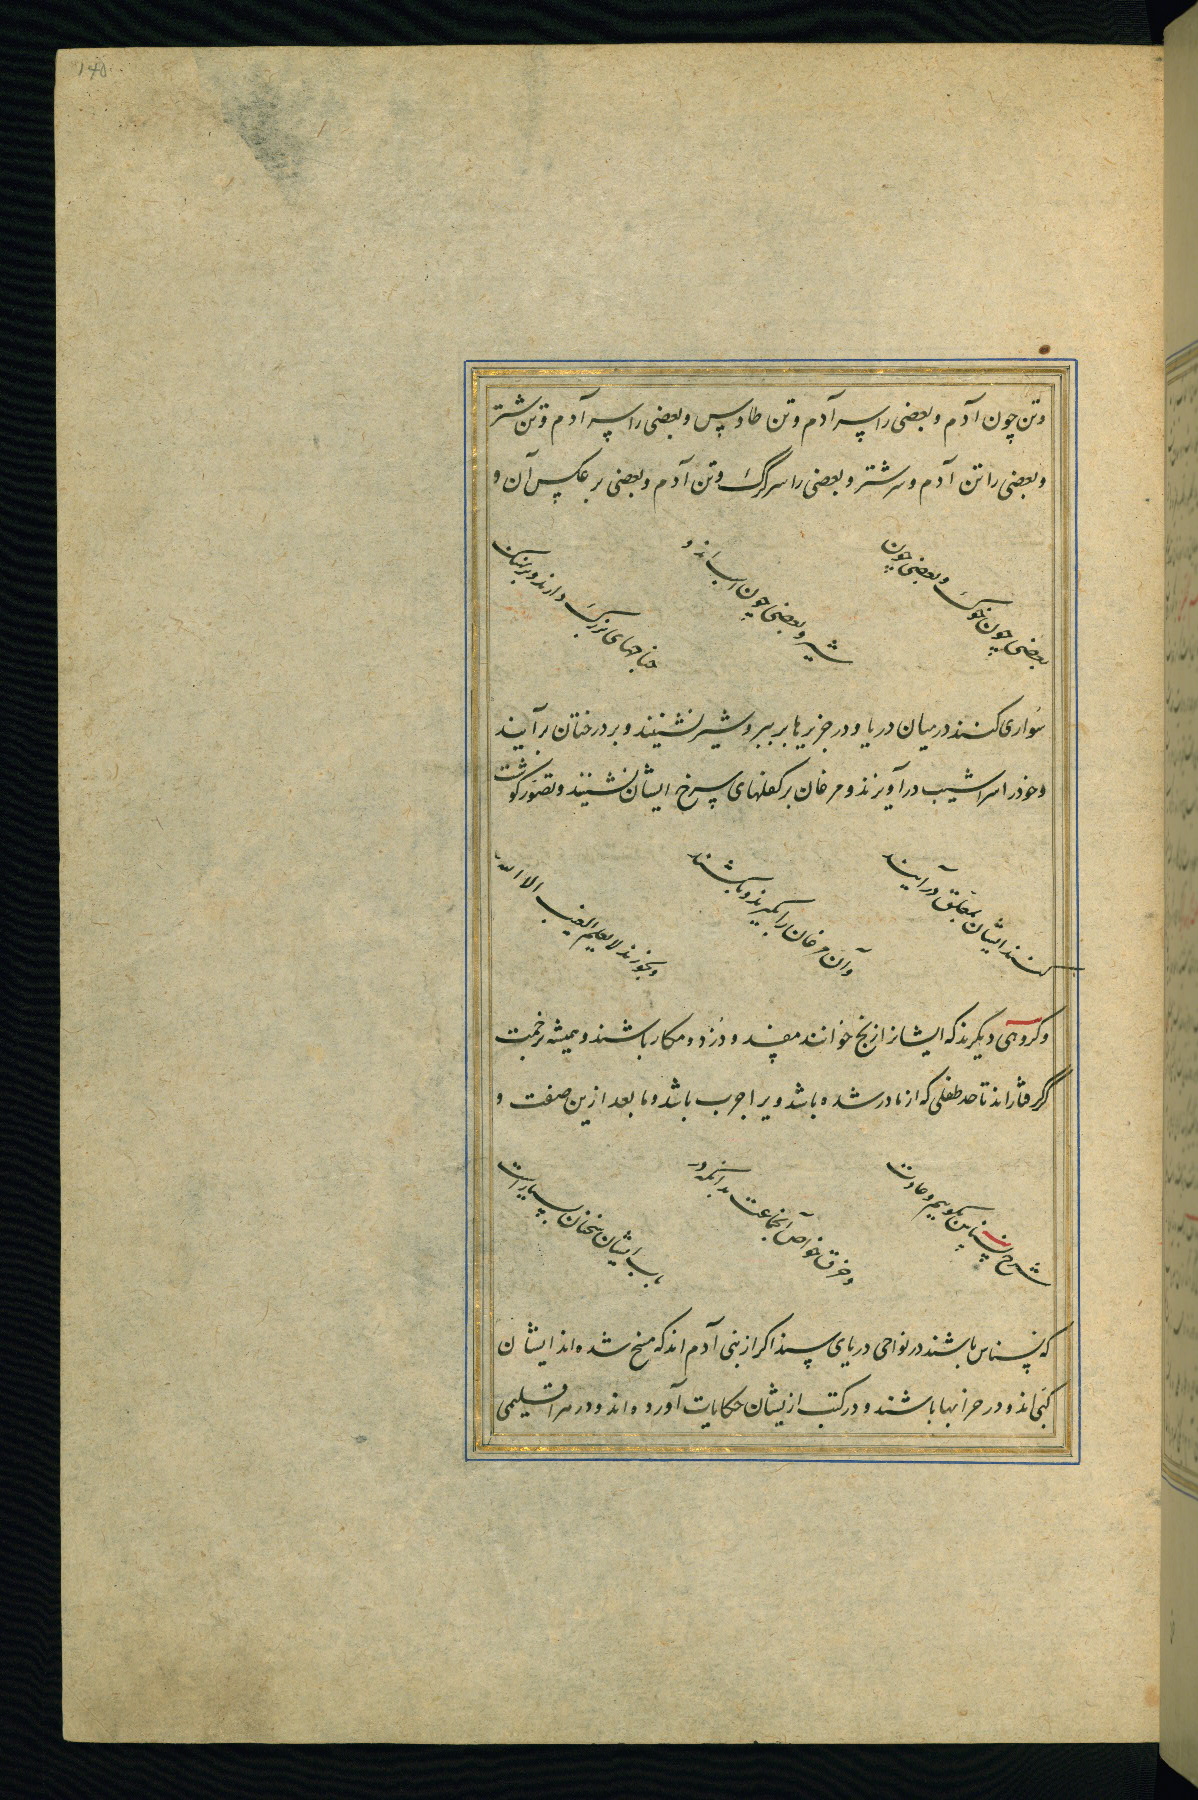 ۱۴۵
وتن چون آدم و بعضی را سر آدم وتن طاوس و بعضی را سر آدم وتن شتر
و بعضی را تن آدم وسر شتر و بعضی را سر گرگ وتن آدم و بعضی بر عکس آن و
بعضی چون خوک و بعضی چون
شیر و بعضی چون اسب اند و
جناحهای بزرگ دارند و بر نهنگ
سواری کنند در میان دریا و در جزیرها بر ببر و شیر نشینند و بر درختان بر آیند
وخود را سراشیب در آویزند و مرغان بر کفلهای سرخ ایشان نشینند و تصور گوشت
کنند ایشان بمعلق در آیند
و آن مرغان را بگیرند و بکشند
و بخورند لا یعلم الغیب الا الله
و کروهی دیکرند که ایشانرا زنج خوانند مفسد و دزد و مکار باشند و همیشه بزحمت
گرفتار اند تا حد طفلی که از مادر شده باشد ویرا جرب باشد و ما بعد ازین صفت و
شرح نسناس بگوییم و عادت
و خرق خواص آنجماعت بدانکه در
باب ایشان سخنان بسیار است
که نسناس باشند در نواحی دریای سند اکر از بنی آدم اند که مسخ شده اند ایشان
کبی اند و در خرابها باشند و در کتب ازیشان حکایات آورده اند و در هر اقلیمی